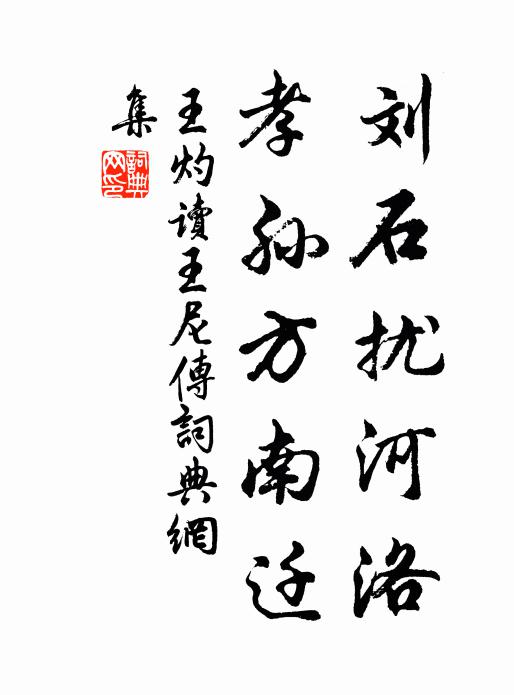 刘石扰河洛
孝孙方南迁
王灼讀王尼傳詞典網
集
詞典网印